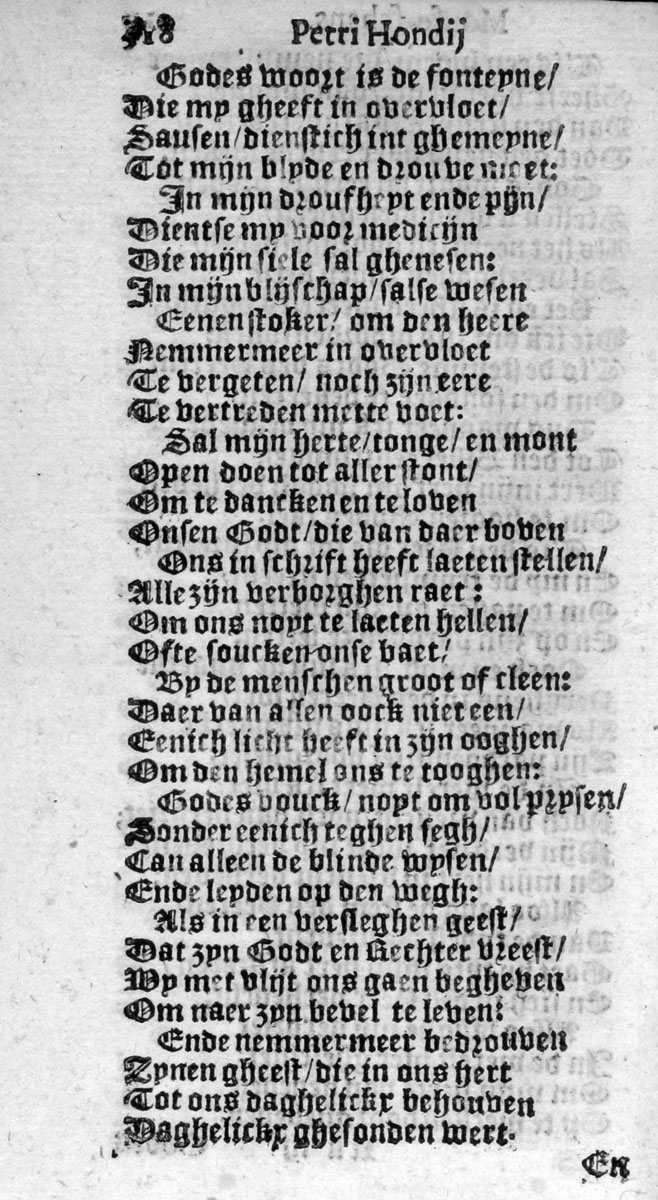 Petri Hondij
Godes woort is de fonteyne/
Die my gheeft in overvloet/
Sausen/dienstich int ghemeyne/
Tot mijn blyde en drouve moet:
In mijn droufheyt ende pijn/
Dientse my voor medicijn
Die mijn siele sal ghenesen:
In mijn blijschap/salse wesen
Eenen stoker/ om den heere
Nemmermeer in overvloet
Te vergeten/ noch zijn eere
Te vertreden mette voet:
Sal mijn herte/tonge/ en mont
Open doen tot aller stont/
Om te dancken en te loven
Onsen Godt/die van daer boven
Ons in schrift heeft laeten stellen/
Alle zijn verborghen raet:
Om ons noyt te laeten hellen/
Ofte soucken onse baet/
By de menschen groot of cleen:
Daer van allen oock niet een/
Eenich licht heeft in zijn ooghen/
Om den hemel ons te tooghen:
Godes bouck/ noyt om vol prysen/
Sonder eenich teghen segh/
Can alleen de blinde wysen/
Ende leyden op den wegh:
Als in een versleghen geest/
Dat zyn Godt en Rechter vreest/
Wy met vlijt ons gaen begheven
Om naer zyn bevel te leven:
Ende nemmermeer bedrouven
Zynen gheest/die in ons hert
Tot ons daghelickx behouven
Daghelickx ghesonden wert.
En